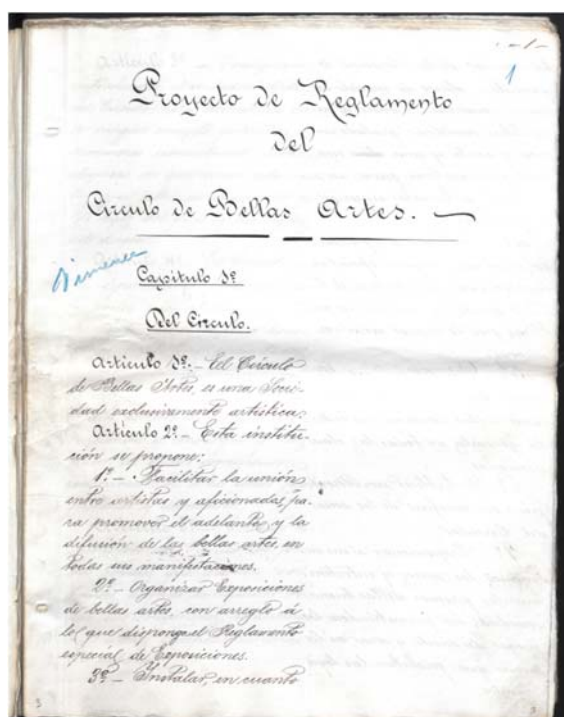 -1-
1
Proyecto de Reglamento
del
Circulo de Bellas Artes.
Capítulo 1º
Del Circulo.
Artículo 1º.- El Círculo
de Bellas Artes, es una Socie-
dad exclusivamente artística.
Artículo 2º.- Esta institu-
ción se propone:
1º.- Facilitar la unión
entre artistas y aficionados, pa-
ra promover el adelanto, y la
difusión de las bellas artes, en
todas sus manifestaciones.
2º.- Organizar Exposiciones
de bellas artes, con arreglo á
lo que disponga el Reglamento
especial de Exposiciones.
3º.- Instalar, en cuanto